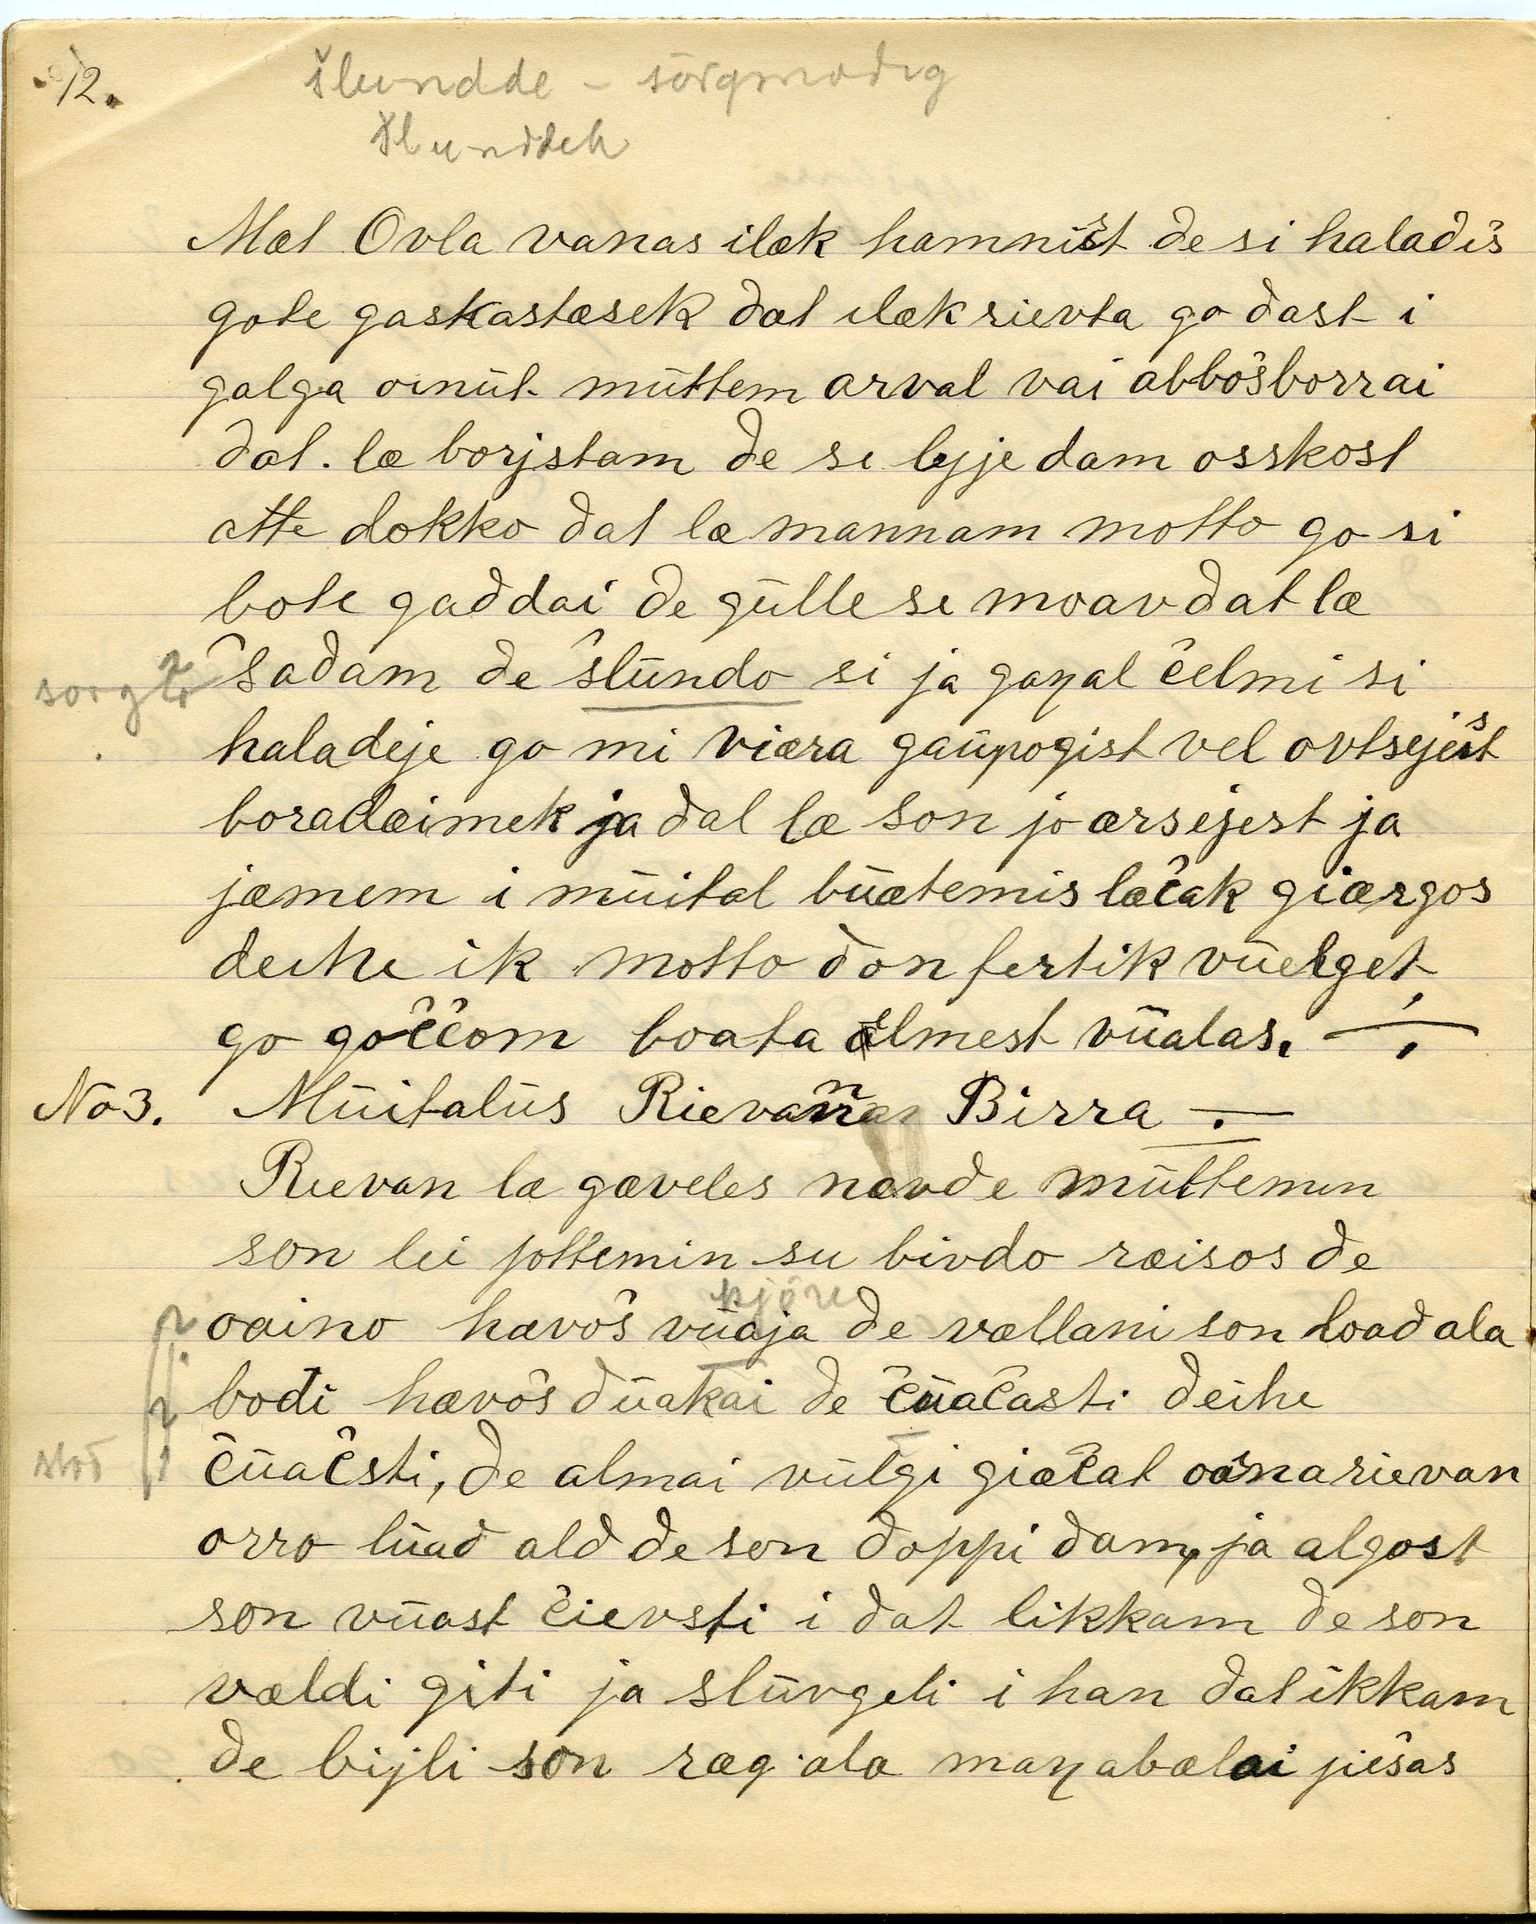 12.
šlundde – sörgmodig
šlunddeh
Mæl Ovla vanas ilæk hamništ de si haladiš
gote gaskastæsek dat ilæk rievta go dast i
galga oinüt müttem arval vai abbošborrai
dat. læ borjstam de si lyje dam osskost
atte dokko dat læ mannam motto go si
bote gaddai de gülle si moavdat læ
šadam de šlündo si ja gaŋal čelmi si
sorgti
haladeje go mi viæra gaüpogist vel ovtseješt
boradæimek ja dal læ son jo ærsejest ja
jæmem i müital büætemis læčak giærgos
deihe ik motto don fertik vüelget
go goččom boata ælmest vüalas. ÷
No 3. Müitalüs Rievan Birra ÷
Rievan læ gæveles navde müttemin
son lei jottemin su bivdo ræisos de
kjöre
oaino hævoš vüaja de vællani son load ala
bodi hævoš düakai de čüačasti deihe
stod
čüačsti, de almai vülgi giæčat oainarievan
orro lüad ald de son doppi dam, ja algost
son vüast čievsti i dat likkam de son
vældi giti ja slüvgeli i han dat ikkam
de bijli son ræg ala maŋabælai ješas